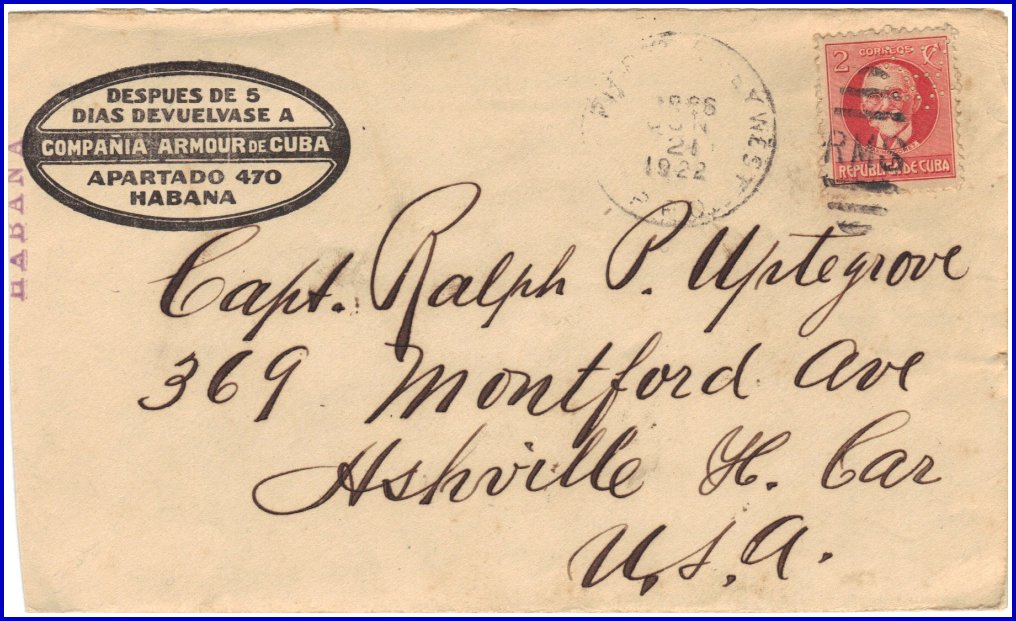 DESPUES DE 5
DIAS DEVUELVASE A
COMPAÑIA ARMOUR DE CUBA
APARTADO 470
HABANA
HABANA
21
1922
2 CORREOS
RMS
REPUBLICA DE CUBA
Capt. Ralph P. Uptegrove
369 Montford Ave
Ashville N. Car
U.S.A.